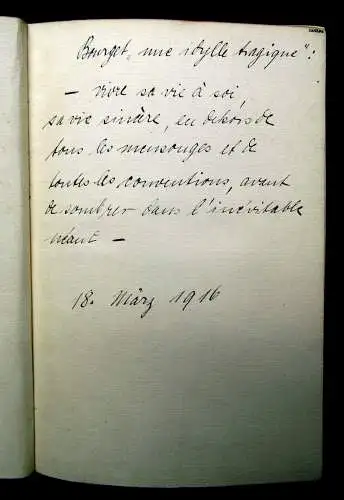 Bourget „une idylle tragique":
— vivre sa vie à soi,
sa vie sincère, en dehors de
tous les mensonges et de
toutes les conventions, avant
de sombrer dans l'inévitable
néant —
18. März 1916